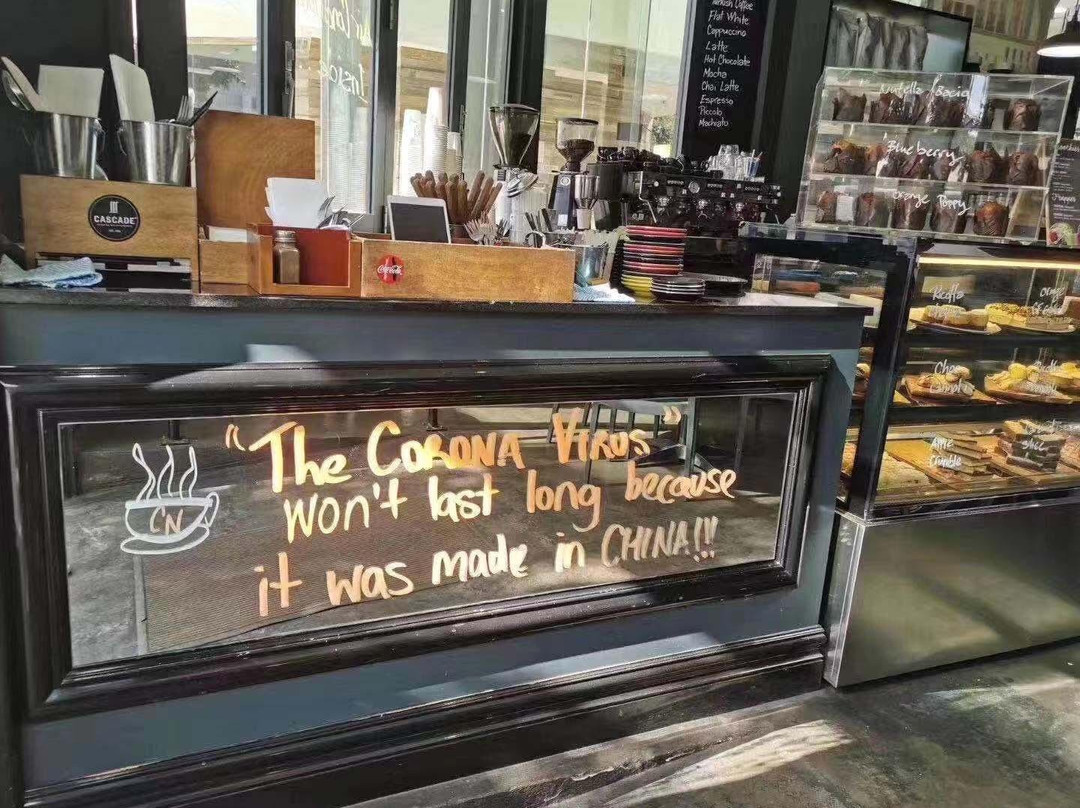 Turkish Coffee
Flat White
Cappuccino
Latte
Hot Chocolate
Mocha
Chai Latte
Espresso
Piccolo
Machiato
Inside
Nutella / Bacio
Blueberry
Orange Poppy
CASCADE
Coca-Cola
Ricotta
Apple
Crumble
"The CORONA VIRUS"
won't last long because
it was made in CHINA!!!
CN